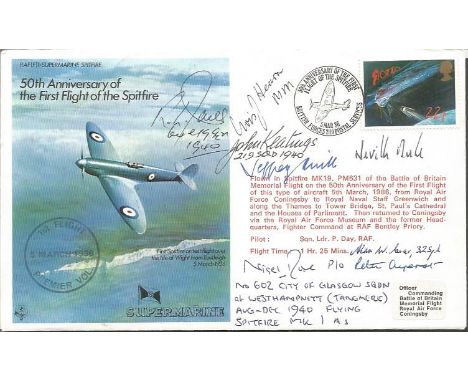 RAF(FF)1 SUPERMARINE SPITFIRE
50th Anniversary of
the First Flight of the Spitfire
1940
John Keatings
219 SQD 1940
Jeffrey Quill
Neville Duke
50th ANNIVERSARY OF THE FIRST
FLIGHT OF THE SPITFIRE
5 MAR 86
BRITISH FORCES POSTAL SERVICES
22p
Flown in Spitfire MK19, PM631 of the Battle of Britain
Memorial Flight on the 50th Anniversary of the First Flight
of this type of aircraft 5th March, 1986, from Royal Air
Force Coningsby to Royal Naval Staff Greenwich and
along the Thames to Tower Bridge, St. Paul's Cathedral
and the Houses of Parliment. Then returned to Coningsby
via the Royal Air Force Museum and the former Head-
quarters, Fighter Command at RAF Bentley Priory.
Pilot: Sqn. Ldr. P. Day, RAF.
Flight Time: 1 Hr. 25 Mins.
Nigel Rose P/O
No 602 CITY OF GLASGOW SQDN
at WESTHAMPNETT (TANGMERE)
AUG-DEC 1940 FLYING
SPITFIRE MK I A S
Officer
Commanding
Battle of Britain
Memorial Flight
Royal Air Force
Coningsby
First Spitfire on test flight over
the Isle of Wight from Eastleigh
5 March 1936
5 MARCH 1936
PREMIER VOL
SUPERMARINE